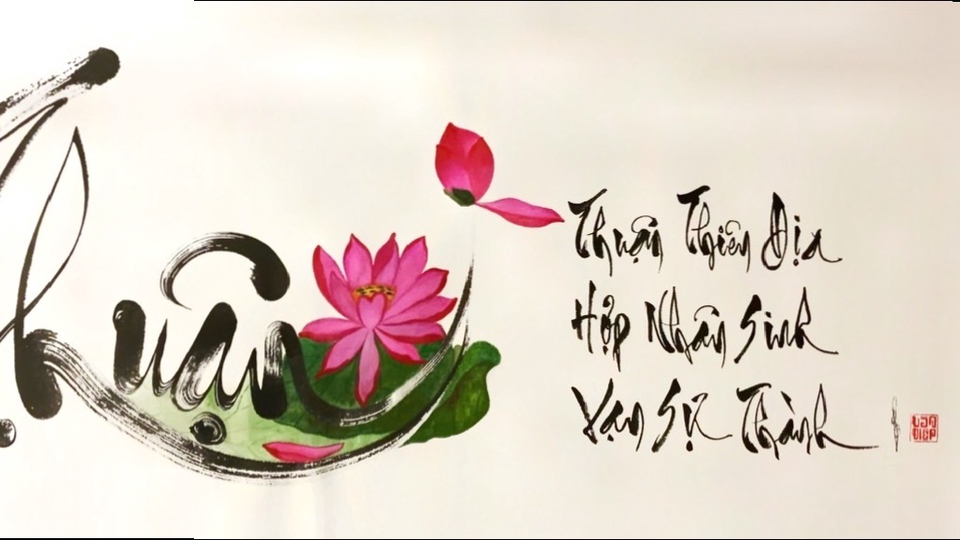 Thuận
Thuận Thiên Địa
Hợp Nhân Sinh
Vạn Sự Thành
VAN
ĐIỆP